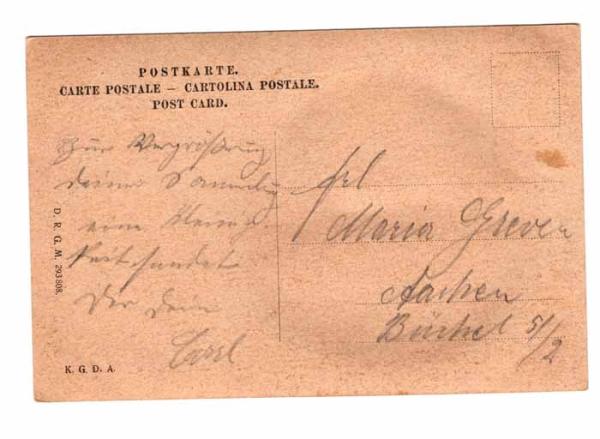 POSTKARTE.
CARTE POSTALE — CARTOLINA POSTALE.
POST CARD.
Zur Vergrößerung
deiner Sammlung
eine
Der dein
Carl
Frl
Maria Greven
Aachen
Büchel 5/2
D. R. G. M. 293808.
K. G. D. A.